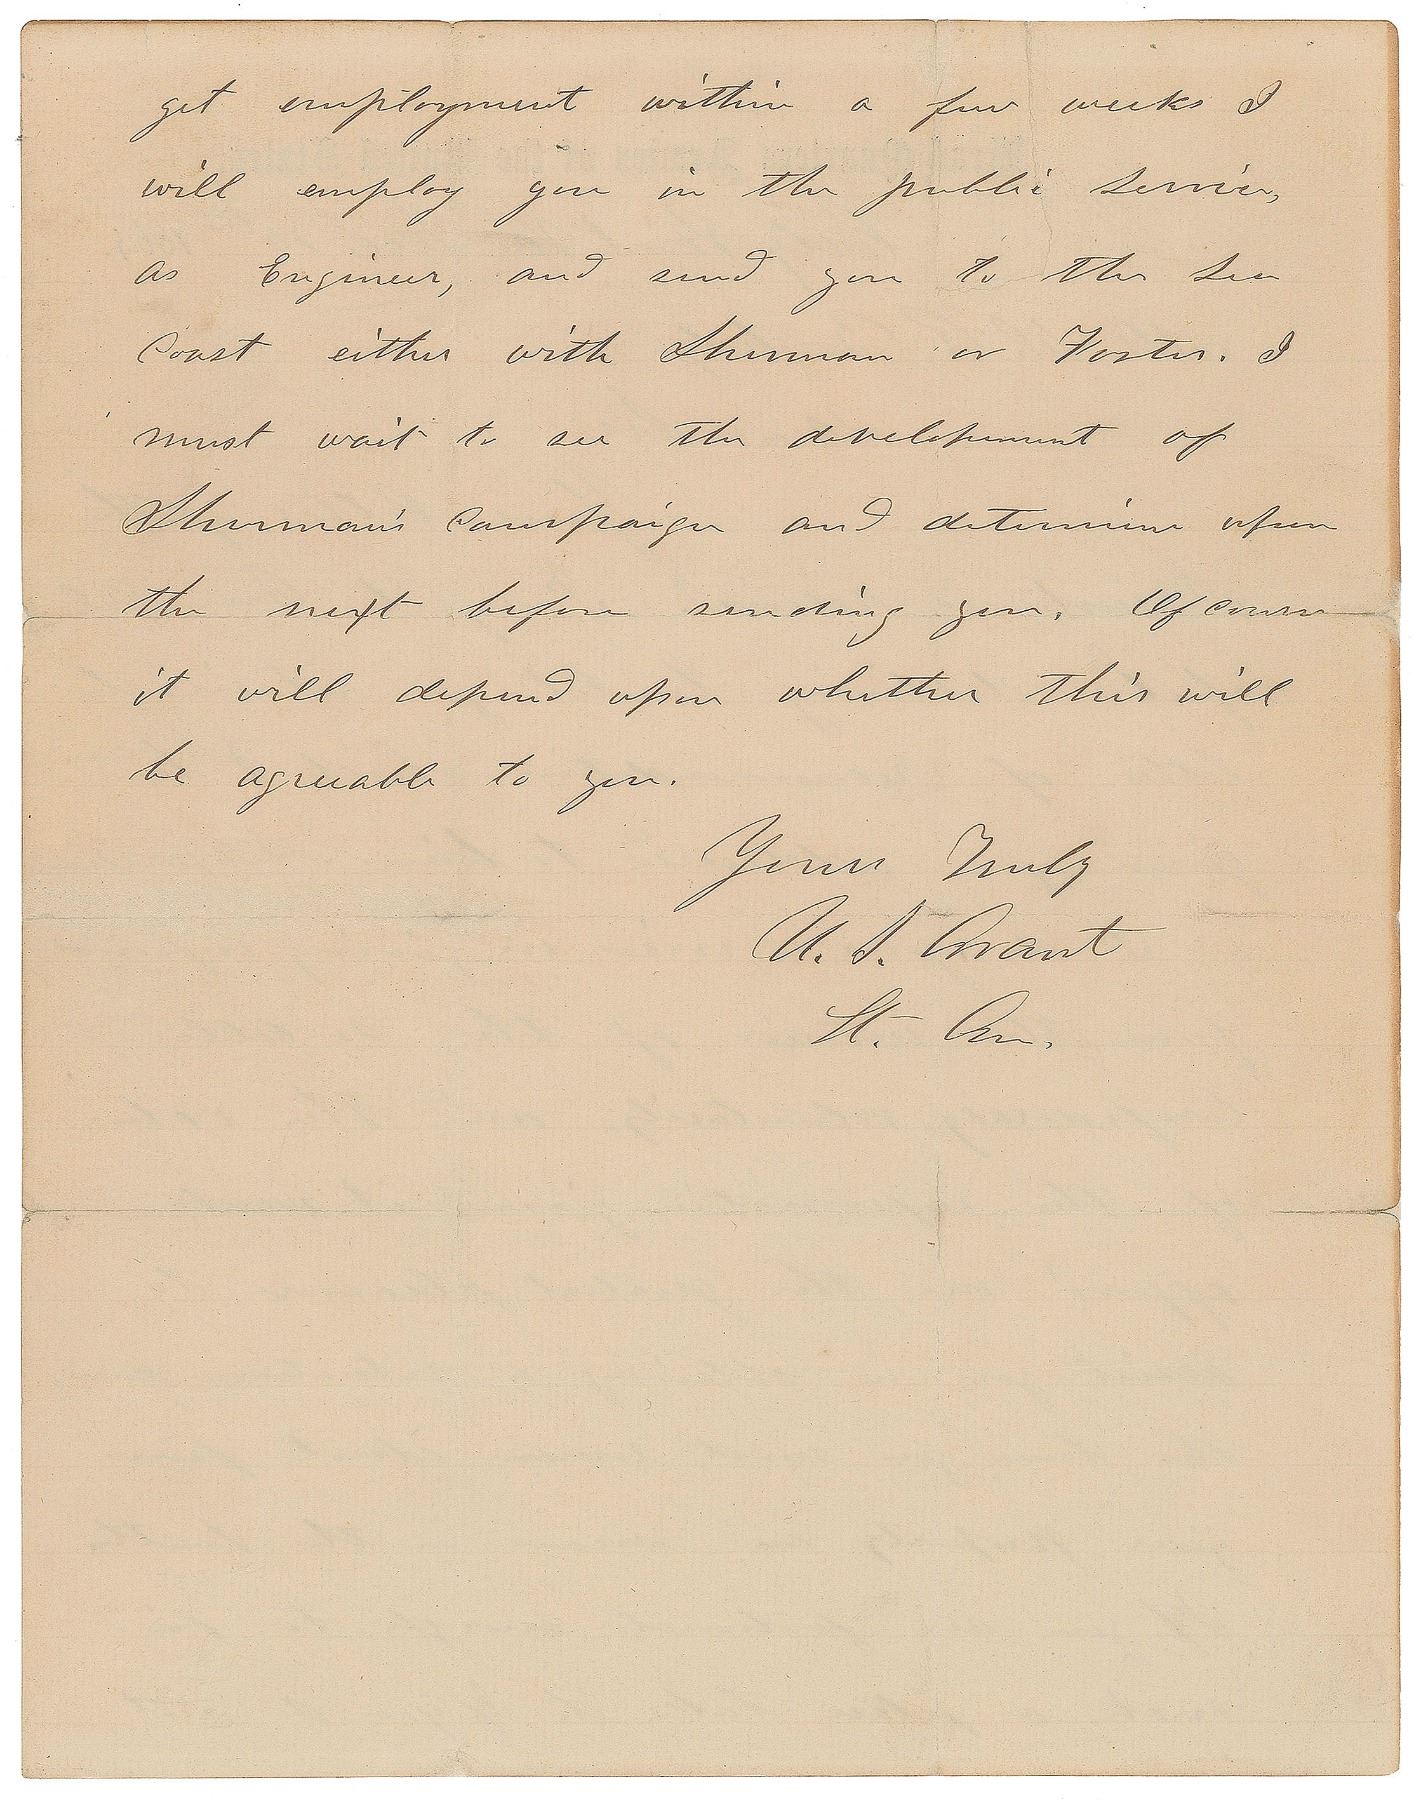 get employment within a few weeks I
will employ you in the public service,
as Engineer, and send you to the sea
coast either with Sherman or Foster. I
must wait to see the developement of
Sherman's campaign and determine upon
the next before sending you. Of course
it will depend upon whether this will
be agreeable to you.
Yours Truly
U. S. Grant
Lt. Gen.